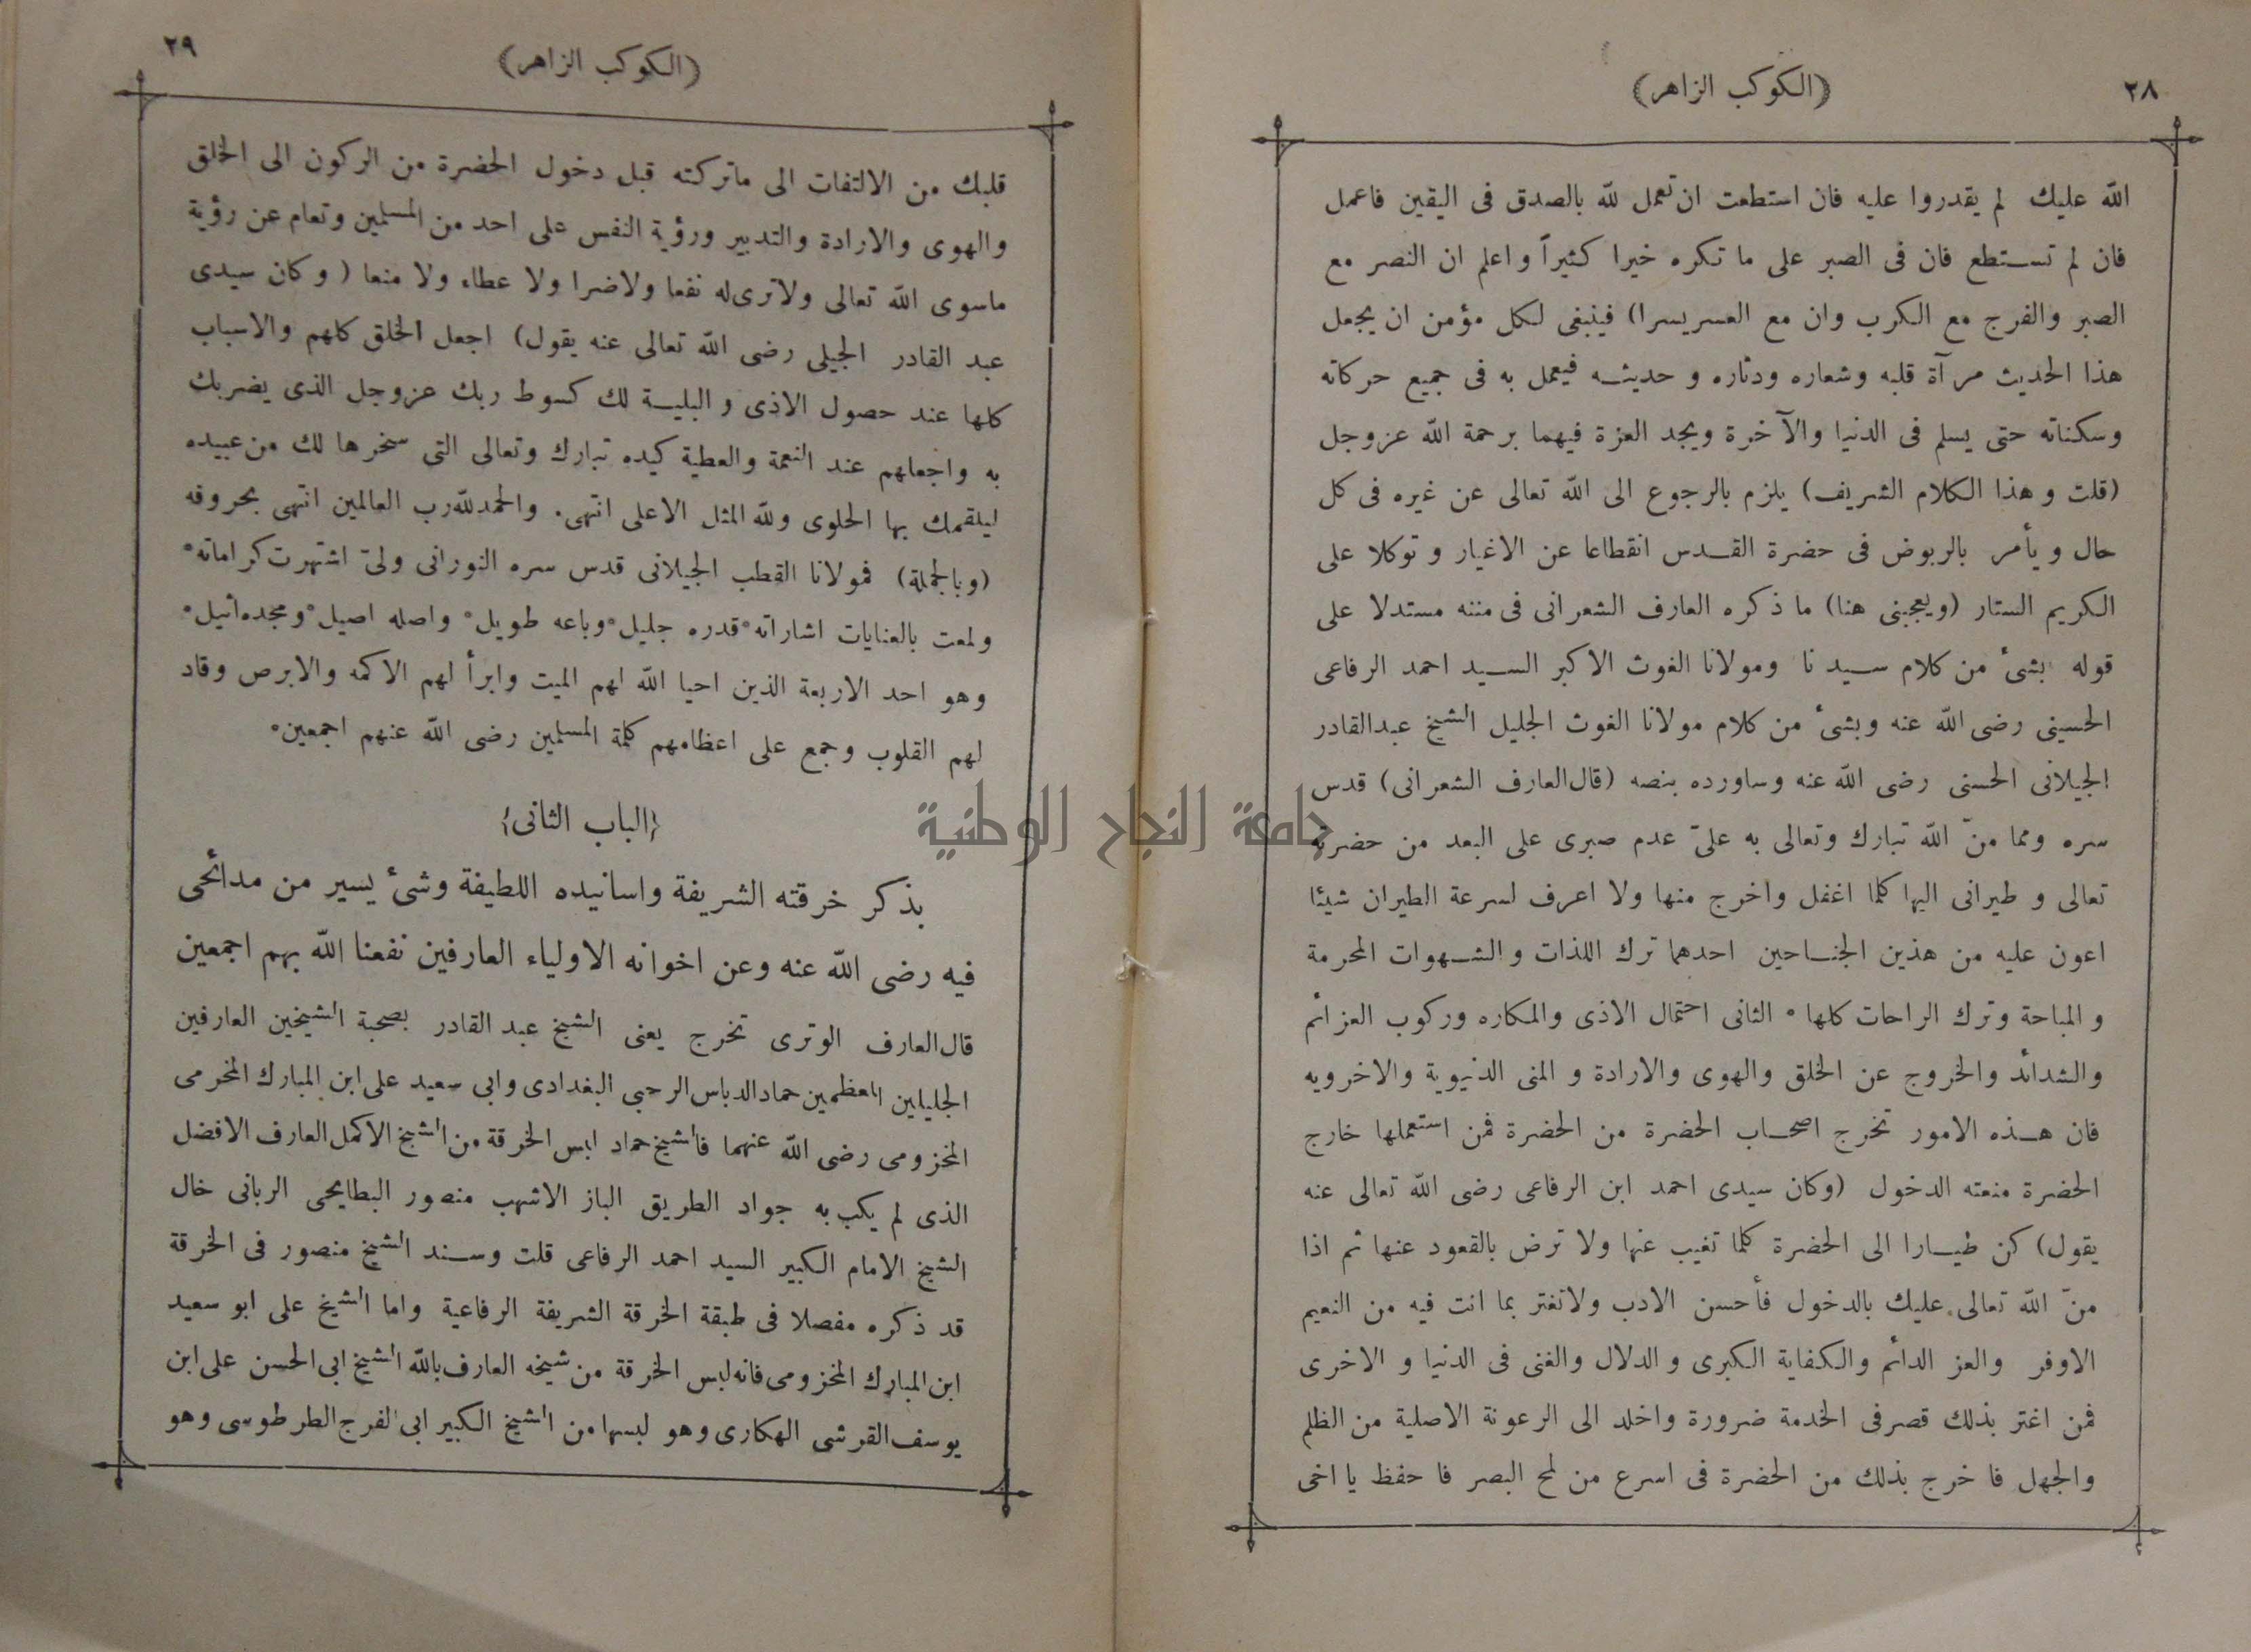 ٢٨
(الكوكب الزاهر)
الله عليك لم يقدروا عليه فان استطعت ان تعمل لله بالصدق فى اليقين فاعمل
فان لم تستطع فان فى الصبر على ما تكره خيرا كثيراً واعلم ان النصر مع
الصبر والفرج مع الكرب وان مع العسر يسرا) فينبغى لكل مؤمن ان يجعل
هذا الحديث مرآة قلبه وشعاره ودثاره و حديثه فيعمل به فى جميع حركاته
وسكناته حتى يسلم فى الدنيا والآخرة ويجد العزة فيهما برحمة الله عزوجل
(قلت وهذا الكلام الشريف) يلزم بالرجوع الى الله تعالى عن غيره فى كل
حال ويأمر بالربوض فى حضرة القدس انقطاعا عن الاغيار و توكلا على
الكريم الستار (ويعجبنى هنا) ما ذكره العارف الشعرانى فى مننه مستدلا على
قوله بشىء من كلام سيدنا ومولانا الغوث الاكبر السيد احمد الرفاعى
الحسينى رضى الله عنه وبشىء من كلام مولانا الغوث الجليل الشيخ عبدالقادر
الجيلانى الحسنى رضى الله عنه وساورده بنصه (قال العارف الشعرانى) قدس
سره ومما منّ الله تبارك وتعالى به علىّ عدم صبرى على البعد من حضرته
تعالى و طيرانى اليها كلما اغفل واخرج منها ولا اعرف لسرعة الطيران شيئا
اعون عليه من هذين الجناحين احدهما ترك اللذات والشهوات المحرمة
و المباحة وترك الراحات كلها ° الثانى احتمال الاذى والمكاره وركوب العزائم
والشدائد والخروج عن الخلق والهوى والارادة و المنى الدنيوية والاخرويه
فان هذه الامور تخرج اصحاب الحضرة من الحضرة فمن استعملها خارج
الحضرة منعته الدخول (وكان سيدى احمد ابن الرفاعى رضى الله تعالى عنه
يقول) كن طيارا الى الحضرة كلما تغيب عنها ولا ترض بالقعود عنها ثم اذا
منّ الله تعالى عليك بالدخول فأحسن الادب ولاتغتر بما انت فيه من النعيم
الاوفر والعز الدائم والكفاية الكبرى و الدلال والغنى فى الدنيا و الاخرى
فمن اغتر بذلك قصر فى الخدمة ضرورة واخلد الى الرعونة الاصلية من الظلم
والجهل فا خرج بذلك من الحضرة فى اسرع من لمح البصر فا حفظ يا اخى
٢٩
(الكوكب الزاهر)
قلبك من الالتفات الى ماتركته قبل دخول الحضرة من الركون الى الخلق
والهوى والارادة والتدبير ورؤية النفس على احد من المسلمين وتعام عن رؤية
ماسوى الله تعالى ولاترى له نفعا ولاضرا ولا عطاء ولا منعا ( وكان سيدى
عبد القادر الجيلى رضى الله تعالى عنه يقول) اجعل الخلق كلهم والاسباب
كلها عند حصول الاذى و البلية لك كسوط ربك عزوجل الذى يضربك
به واجعلهم عند النعمة والعطية كيده تبارك وتعالى التى سخرها لك من عبيده
ليلقمك بها الحلوى ولله المثل الاعلى انتهى. والحمدلله رب العالمين انتهى بحروفه
(وبالجملة) فمولانا القطب الجيلانى قدس سره النورانى ولىّ اشتهرت كراماته°
ولمعت بالعنايات اشاراته° قدره جليل° وباعه طويل° واصله اصيل° ومجده اثيل°
وهو احد الاربعة الذين احيا الله لهم الميت وابرأ لهم الاكمه والابرص وقاد
لهم القلوب وجمع على اعظامهم كلمة المسلمين رضى الله عنهم اجمعين°
{الباب الثانى}
بذكر خرقته الشريفة واسانيده اللطيفة وشىء يسير من مدائحى
فيه رضى الله عنه وعن اخوانه الاولياء العارفين نفعنا الله بهم اجمعين
قال العارف الوترى تخرج يعنى الشيخ عبد القادر بصحبة الشيخين العارفين
الجليلين المعظمين حماد الدباس الرحبى البغدادى وابى سعيد على ابن المبارك المخرمى
المخزومى رضى الله عنهما فالشيخ حماد لبس الخرقة من الشيخ الاكمل العارف الافضل
الذى لم يكب به جواد الطريق الباز الاشهب منصور البطايحى الربانى خال
الشيخ الامام الكبير السيد احمد الرفاعى قلت وسند الشيخ منصور فى الخرقة
قد ذكره مفصلا فى طبقة الخرقة الشريفة الرفاعية واما الشيخ على ابو سعيد
ابن المبارك المخزومى فانه لبس الخرقة من شيخه العارف بالله الشيخ ابى الحسن على ابن
يوسف القرشى الهكارى وهو لبسها من الشيخ الكبير ابى الفرج الطرطوسى وهو
جامعة النجاح الوطنية